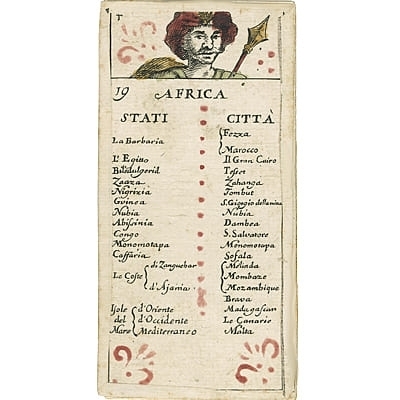 T
19 AFRICA
STATI CITTÀ
Fezza
La Barbaria
Marocco
L'Egitto Il Gran Cairo
Biledulgerid Tefset
Zaaza Zahanga
Nigrizia Tombut
Guinea S. Giorgio della mina
Nubia Nubia
Abissinia Dambea
Congo S. Salvatore
Monomotapa Monomotapa
Caffaria Sofala
di Zanguebar Melinda
Le Coste Mombaze
d'Ajania Mozambique
Brava
Isole d'Oriente Madagascar
del d'Occidente Le Canarie
Mare Mediterraneo Malta